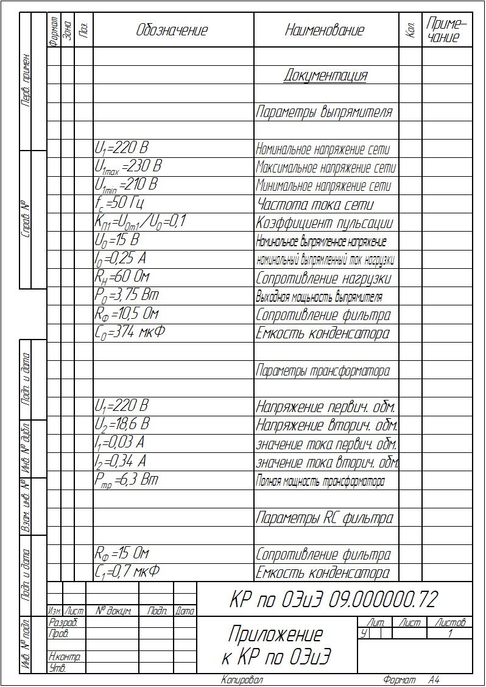 Перв. примен.
Справ. №
Подп. и дата
Инв. № дубл.
Взам. инв. №
Подп. и дата
Инв. № подл.
Формат Зона Поз. Обозначение Наименование Кол. Приме-
чание
Документация
Параметры выпрямителя
U1=220 В Номинальное напряжение сети
U1max=230 В Максимальное напряжение сети
U1min=210 В Минимальное напряжение сети
fc=50 Гц Частота тока сети
KП1=U0m1/U0=0,1 Коэффициент пульсации
U0=15 В Номинальное выпрямленое напряжение
I0=0,25 А номинальный выпрямленный ток нагрузки
RН=60 Ом Сопротивление нагрузки
P0=3,75 Вт Выходная мощьность выпрямителя
RФ=10,5 Ом Сопротивление фильтра
C0=374 мкФ Емкость конденсатора
Параметры трансформатора
U1=220 В Напряжение первич. обм.
U2=18,6 В Напряжение вторич. обм.
I1=0,03 А значение тока первич. обм.
I2=0,34 А значение тока вторич. обм.
Pтр=6,3 Вт Полная мощность трансформатора
Параметры RC фильтра
RФ=15 Ом Сопротивление фильтра
C1=0,7 мкФ Емкость конденсатора
КР по ОЭиЭ 09.000000.72
Изм. Лист № докум. Подп. Дата
Разраб.
Пров.
Н.контр.
Утв.
Приложение
к КР по ОЭиЭ
Лит. Лист Листов
У 1
Копировал Формат А4